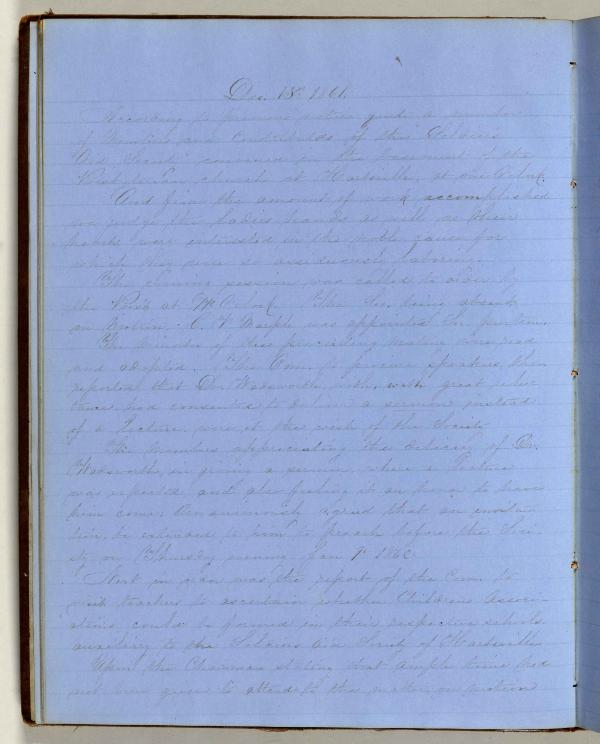 Dec. 18th 1861.
According to previous notice quite a number
of Members and Contributors of the "Soldiers
Aid Society" convened in the basement of the
Presbyterian church at Hartsville, at one Oclock.
And from the amount of work accomplished
we judge the Ladies hands as well as their
hearts were interested in the noble cause for
which they were so assiduously laboring.
The evening session was called to order by
the Pres't at Oclock. The Sec. being absent
on motion C. W was appointed Sec. pro tem.
The minutes of the preceeding meeting were read
and adopted. The Com. to procure speakers, then
reported that Dr. Wadsworth, with great reluc
tance had consented to deliver a sermon instead
of a Lecture, were it the wish of the Society
The members appreciating the delicacy of Dr.
Wadsworth, in giving a sermon, where a Lecture
was expected, and also feeling it an honor to have
him come; Unanimously agreed that an invita-
tion be extended to him to preach before the Soci-
ety on Thursday evening Jan 9th 1862
Next in order was the report of the Com. to
visit teachers to ascertain whether Childrens Associ-
ations could be formed in their respective schools
auxiliary to the Soldiers Aid Society of Hartsville
Upon the Chairman stating that ample time had
not been given to attend to the matter, on motion